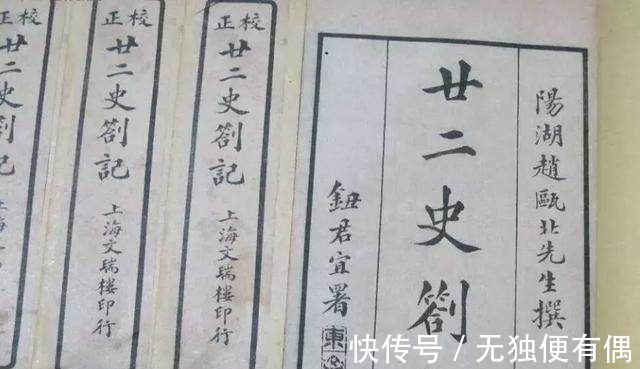 陽湖趙甌北先生撰
廿二史劄
鈕君宜署
校正
廿二史劄記
上海文瑞樓印行
校正
廿二史劄記
上海文瑞樓印行
正
廿二史劄記
快传号 / 无独便有偶